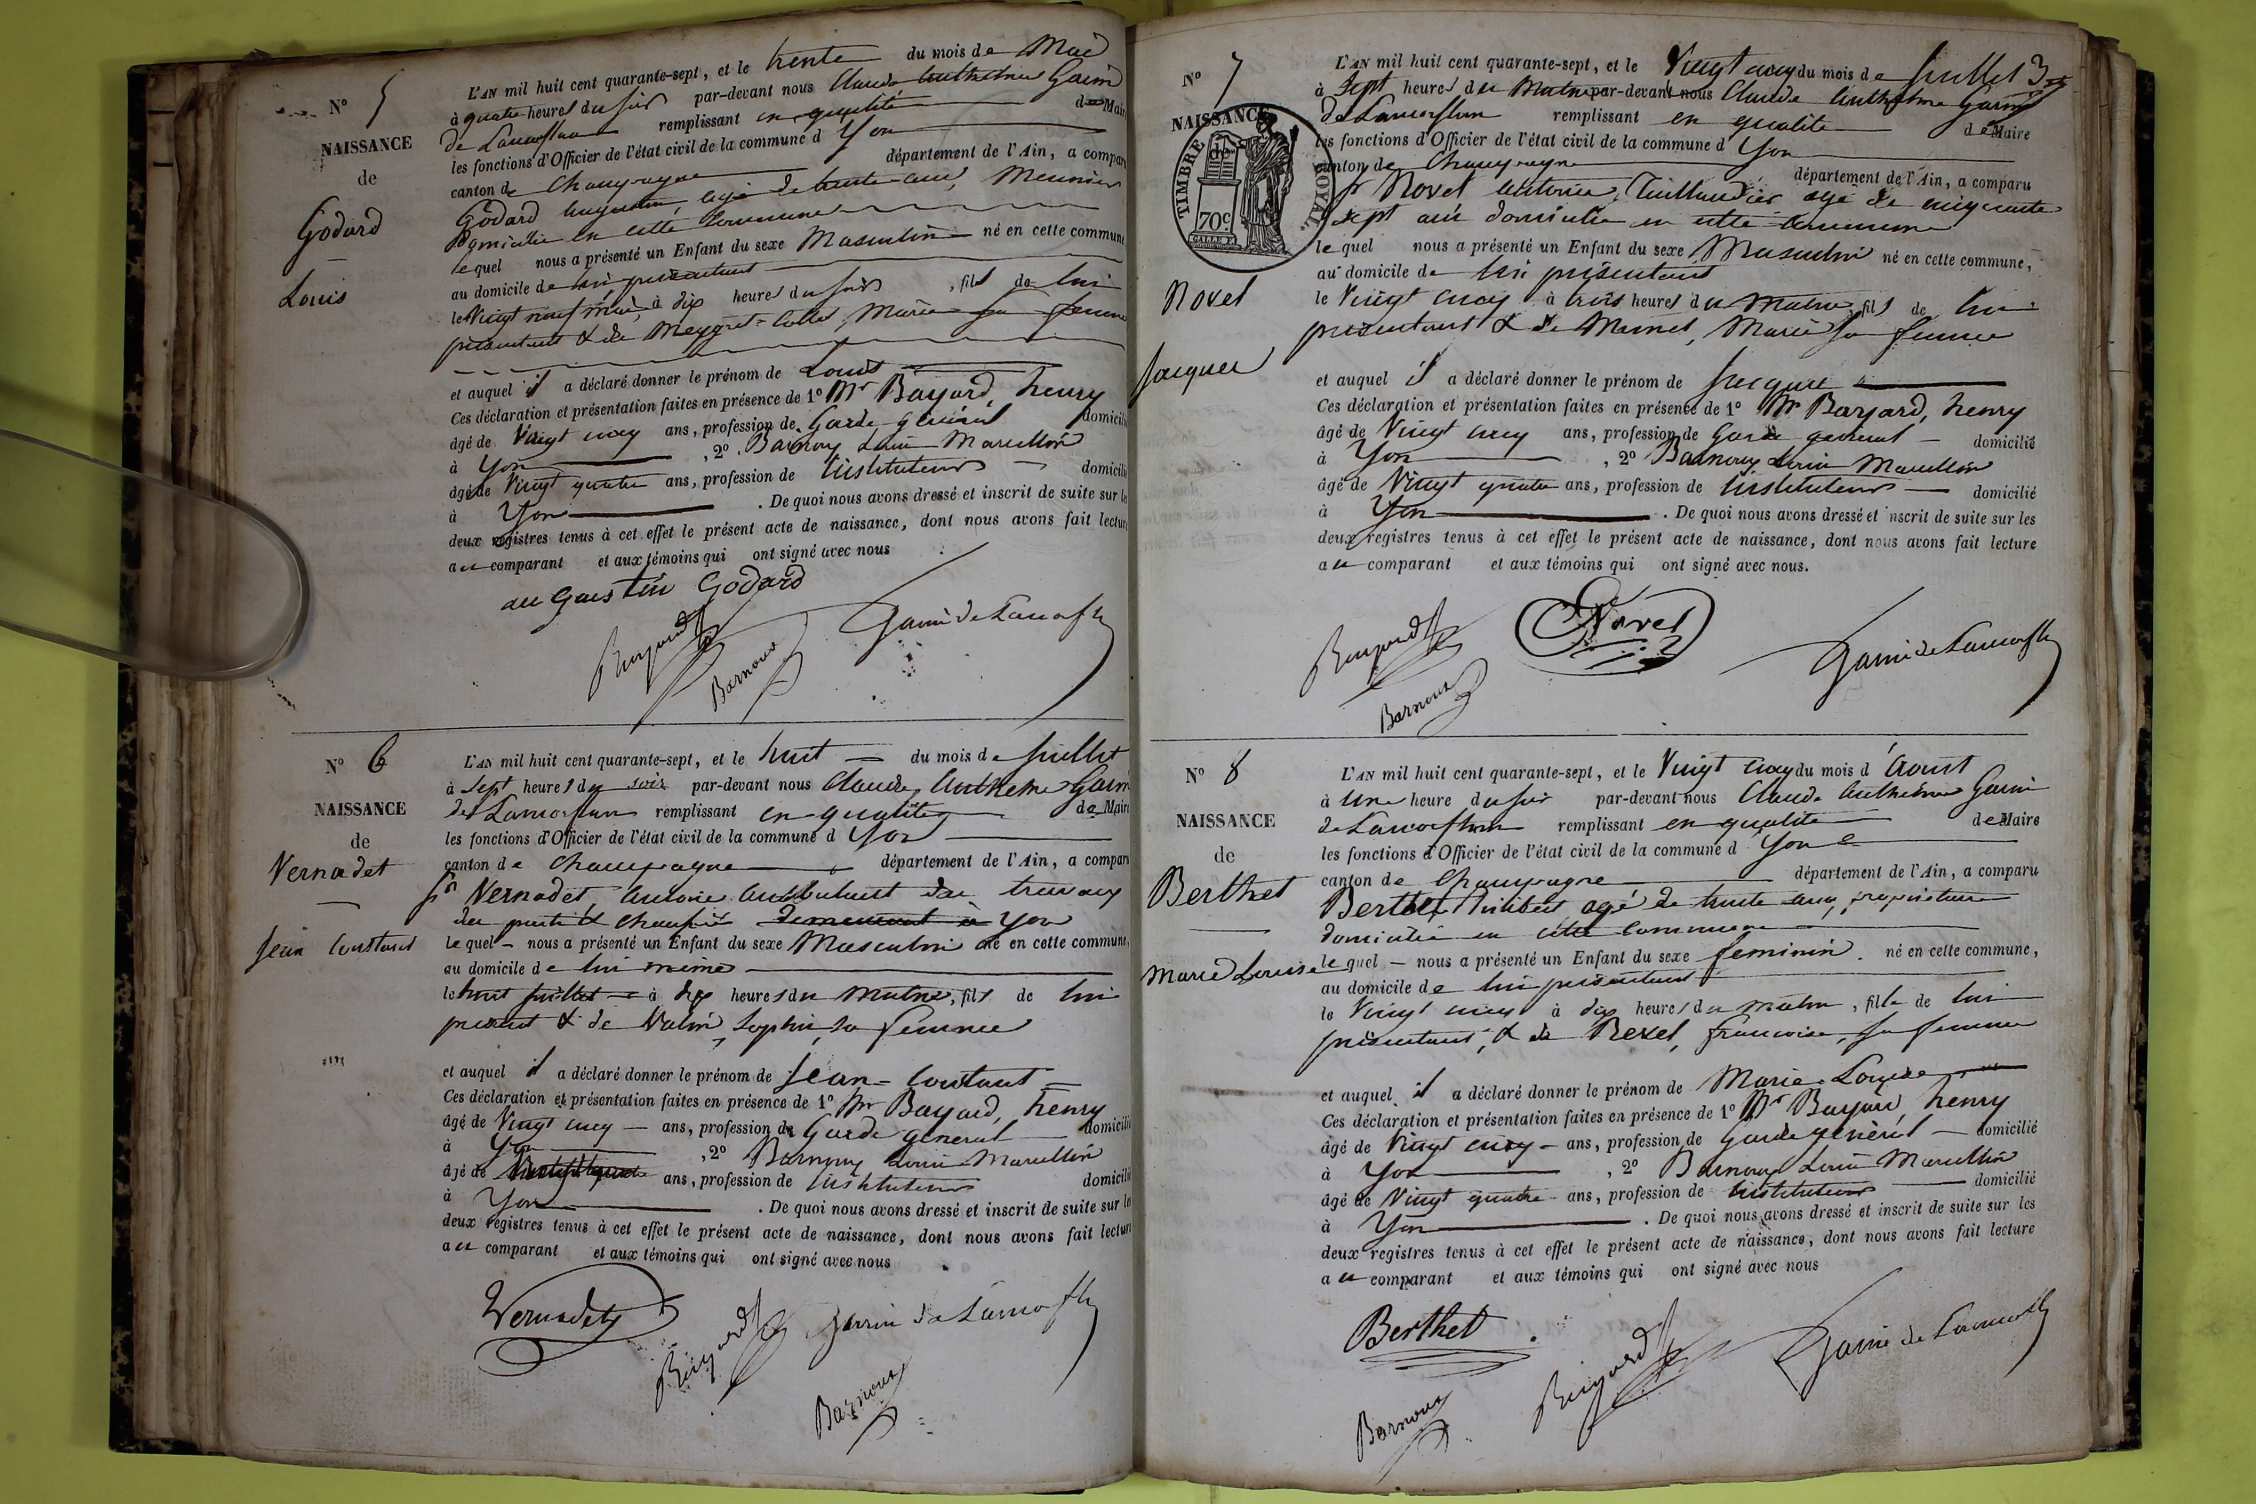 N° 5
NAISSANCE
de
Godard
Louis
L'AN mil huit cent quarante-sept, et le trente du mois de Mai
à quatre heures du soir par-devant nous Claude Anthelme Garin
de Lamorflan remplissant en qualité de Maire
les fonctions d'Officier de l'état civil de la commune d Yon
canton de Champagne département de l'Ain, a comparu
Godard Augustin, agé de trente ans, Meunier
domicilié en cette Commune
lequel nous a présenté un Enfant du sexe Masculin né en cette commune
au domicile de lui présentant
le Vingt neuf mai, à dix heures du soir, fils de lui
présentant & de Meygret-Collet, Marie sa femme
et auquel il a déclaré donner le prénom de Louis
Ces déclaration et présentation faites en présence de 1° Mr Bayard, henry
âgé de Vingt cinq ans, profession de Garde général domicilié
à Yon, 2° Barnoux Louis Marcellin
âgé de Vingt quatre ans, profession de Instituteur domicilié
à Yon. De quoi nous avons dressé et inscrit de suite sur les
deux registres tenus à cet effet le présent acte de naissance, dont nous avons fait lecture
au comparant et aux témoins qui ont signé avec nous
augustin Godard
Bayard
Barnoux
Garin de Lamorfla
N° 6
NAISSANCE
de
Vernadet
Jean Constant
L'AN mil huit cent quarante-sept, et le huit du mois de Juillet
à sept heures du soir par-devant nous Claude Anthelme Garin
de Lamorflan remplissant en qualité de Maire
les fonctions d'Officier de l'état civil de la commune d Yon
canton de Champagne département de l'Ain, a comparu
Sr Vernadet, Antoine travaux
des ponts & chaussés demeurant à Yon
lequel nous a présenté un Enfant du sexe Masculin né en cette commune,
au domicile de lui même
le huit Juillet à dix heures du matin, fils de lui
présent & de Sophie, sa femme
et auquel il a déclaré donner le prénom de Jean-Constant
Ces déclaration et présentation faites en présence de 1° Mr Bayard, henry
âgé de Vingt cinq ans, profession de Garde général domicilié
à Yon, 2° Barnoux Louis Marcellin
âgé de Vingt quatre ans, profession de Instituteur domicilié
à Yon. De quoi nous avons dressé et inscrit de suite sur les
deux registres tenus à cet effet le présent acte de naissance, dont nous avons fait lecture
au comparant et aux témoins qui ont signé avec nous
Vernadet
Bayard
Garin de Lamorfla
Barnoux
N° 7
NAISSANCE
de
TIMBRE ROYAL
70c
Novel
Jacques
L'AN mil huit cent quarante-sept, et le Vingt cinq du mois de Juillet
à Sept heures du Matin par-devant nous Claude Anthelme Garin
de Lamorflan remplissant en qualité de Maire
les fonctions d'Officier de l'état civil de la commune d Yon
canton de Champagne département de l'Ain, a comparu
Sr Novel Antoine, Taillandier agé de cinquante
sept ans domicilié en cette commune
lequel nous a présenté un Enfant du sexe Masculin né en cette commune,
au domicile de lui présentant
le Vingt cinq à trois heures du Matin, fils de lui
présentant & de Marie sa femme
et auquel il a déclaré donner le prénom de Jacques
Ces déclaration et présentation faites en présence de 1° Mr Bayard, henry
âgé de Vingt cinq ans, profession de Garde général domicilié
à Yon, 2° Barnoux Louis Marcellin
âgé de Vingt quatre ans, profession de Instituteur domicilié
à Yon. De quoi nous avons dressé et inscrit de suite sur les
deux registres tenus à cet effet le présent acte de naissance, dont nous avons fait lecture
au comparant et aux témoins qui ont signé avec nous.
Bayard
Novel
Barnoux
Garin de Lamorfla
N° 8
NAISSANCE
de
Berthet
Marie Louise
L'AN mil huit cent quarante-sept, et le Vingt cinq du mois d'Aoust
à Une heure du soir par-devant nous Claude Anthelme Garin
de Lamorflan remplissant en qualité de Maire
les fonctions d'Officier de l'état civil de la commune d Yon
canton de Champagne département de l'Ain, a comparu
Berthet Philibert agé de trente ans, propriétaire
domicilié en cette Commune
lequel nous a présenté un Enfant du sexe feminin né en cette commune,
au domicile de lui présentant
le Vingt cinq à dix heures du matin, fille de lui
présentant, & de Françoise, sa femme
et auquel il a déclaré donner le prénom de Marie Louise
Ces déclaration et présentation faites en présence de 1° Mr Bayard, henry
âgé de Vingt cinq ans, profession de Garde général domicilié
à Yon, 2° Barnoux Louis Marcellin
âgé de Vingt quatre ans, profession de Instituteur domicilié
à Yon. De quoi nous avons dressé et inscrit de suite sur les
deux registres tenus à cet effet le présent acte de naissance, dont nous avons fait lecture
au comparant et aux témoins qui ont signé avec nous
Berthet
Barnoux
Bayard
Garin de Lamorfla